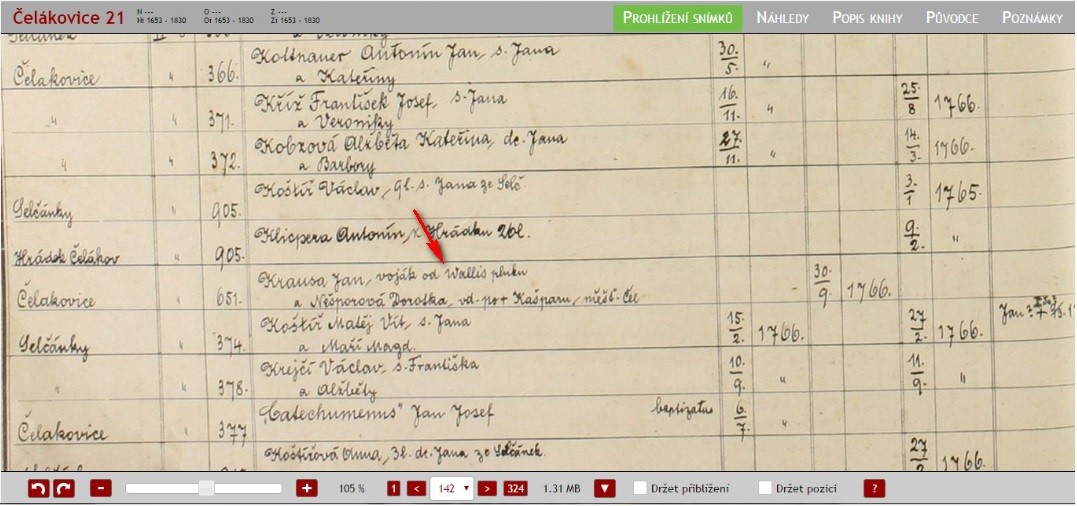 Čelákovice 21
N ---
Ni 1653 - 1830
O ---
Oi 1653 - 1830
Z ---
Zi 1653 - 1830
Prohlížení snímků Náhledy Popis knihy Průvodce Poznámky
Čelakovice " 366. Koltnauer Antonín Jan, s. Jana 30. 5. "
a Kateřiny
" " 371. Kříž František Josef, s. Jana 16. 11. " 25 8 1766.
a Veroniky
" " 372. Kobzová Alžběta Kateřina, dc. Jana 27 11. " 14. 3. 1766.
a Barbory
Selčánky " 905. Koštíř Václav, 9l. s. Jana ze Selč. 3. 1 1765.
Hrádek Čelákov " 905. Klicpera Antonín, z Hrádku 26l. 9. 2. "
Čelakovice " 651. Krausa Jan, voják od Wallis pluku 30. 9. 1766.
a Nešporová Dorotka, vd. po + Kašparu, měšť. Čel
Selčánky " 374. Koštíř Matěj Vít, s. Jana 15. 2. 1766. 27 2. 1766.
a Maří Magd.
" " 378. Krejčí Václav, s. Františka 10. 9. " 11. 9. "
a Alžběty
Čelakovice " 377 "Catechumenus" Jan Josef baptizatus 6. 7. "
Koštířová Anna, 3l. dc. Jana ze Selčánek. 27 2 1766.
105 % 1 < 142 > 324 1.31 MB Držet přiblížení Držet pozici ?